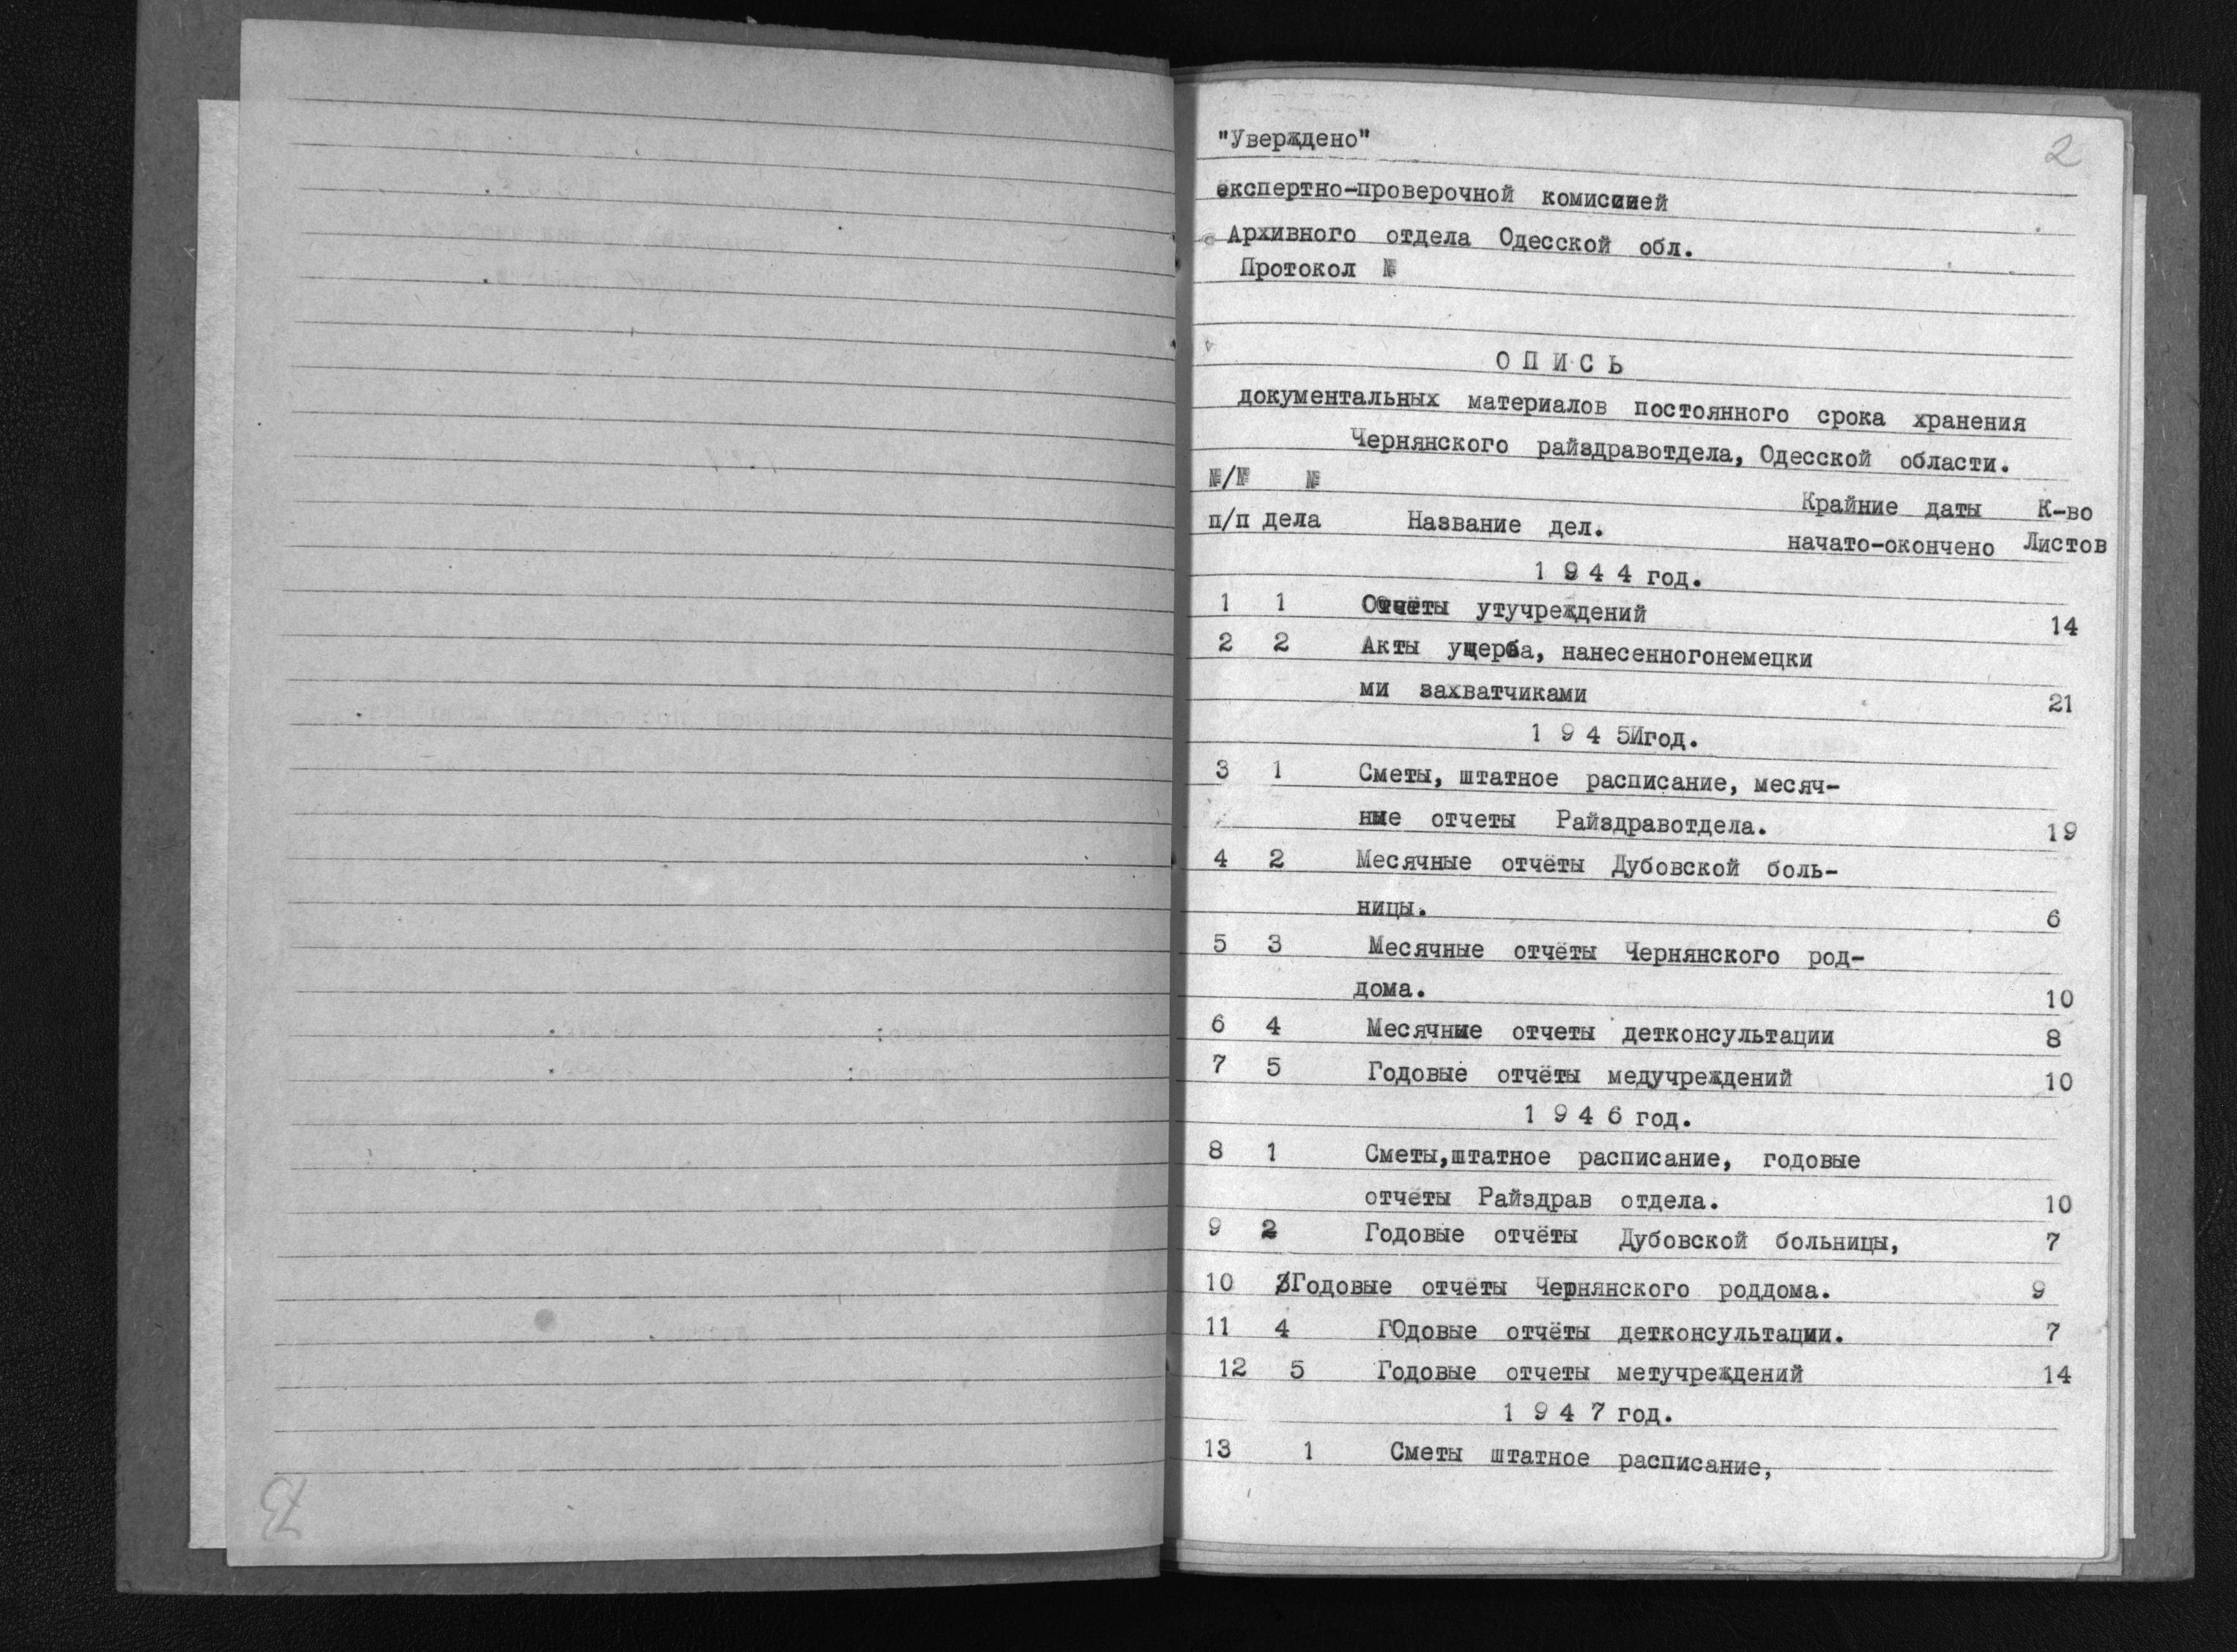 2
"Уверждено"
экспертно-проверочной комиссией
Архивного отдела Одесской обл.
Протокол №
О П И С Ь
документальных материалов постоянного срока хранения
Чернянского райздравотдела, Одесской области.
№/№ № Крайние даты К-во
п/п дела Название дел. начато-окончено Листов
1 9 4 4 год.
1 1 Отчёты утучреждений 14
2 2 Акты ущерба, нанесенногонемецки
ми захватчиками 21
1 9 4 5Игод.
3 1 Сметы, штатное расписание, месяч-
ные отчеты Райздравотдела. 19
4 2 Месячные отчёты Дубовской боль-
ницы. 6
5 3 Месячные отчёты Чернянского род-
дома. 10
6 4 Месячные отчеты детконсультации 8
7 5 Годовые отчёты медучреждений 10
1 9 4 6 год.
8 1 Сметы,штатное расписание, годовые
отчёты Райздрав отдела. 10
9 2 Годовые отчёты Дубовской больницы, 7
10 3Годовые отчёты Чернянского роддома. 9
11 4 ГОдовые отчёты детконсультации. 7
12 5 Годовые отчеты метучреждений 14
1 9 4 7 год.
13 1 Сметы штатное расписание,